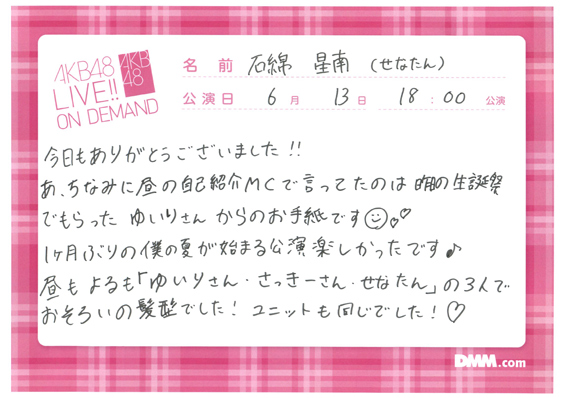 AKB48
LIVE!!
ON DEMAND
AKB
48
名前 石綿 星南 (せなたん)
公演日 6月 13日 18:00 公演
今日もありがとうございました!!
あ、ちなみに昼の自己紹介MCで言ってたのは の生誕祭
でもらった ゆいりさん からのお手紙です☺♡♡
1ヶ月ぶりの僕の夏が始まる公演楽しかったです♪
昼もよるも「ゆいりさん・さっきーさん・せなたん」の3人で
おそろいの髪型でした! ユニットも同じでした!♡
DMM.com